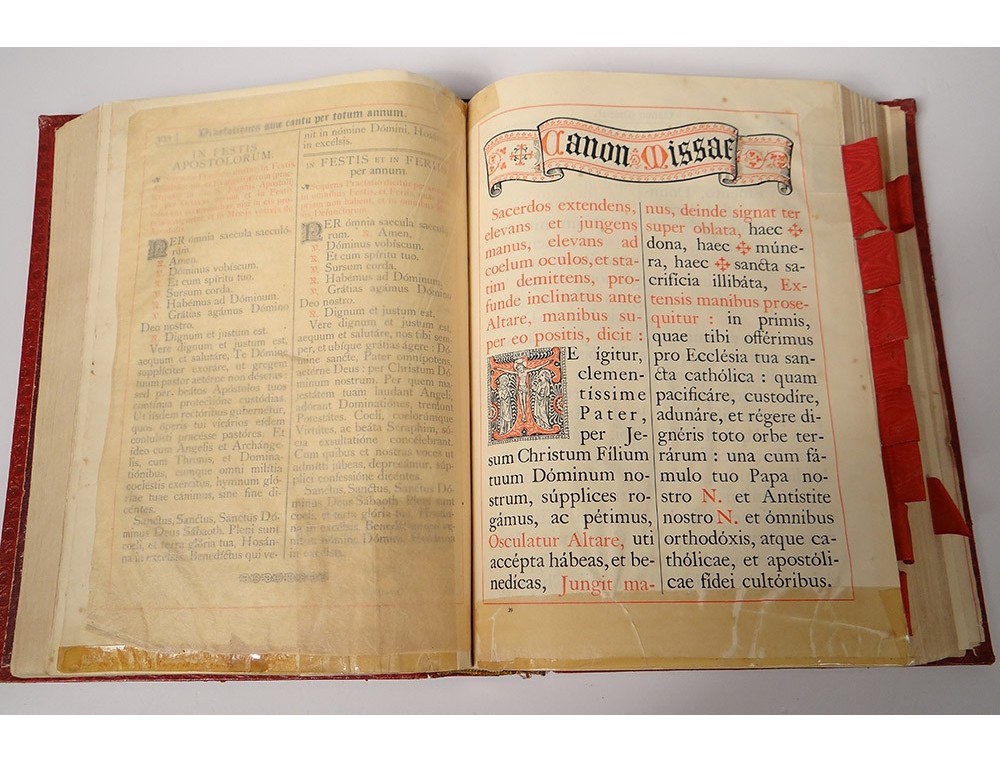 Praefationes sine cantu per totum annum.
IN FESTIS
APOSTOLORUM.
PER ómnia saecula saeculó-
rum.
℟. Amen.
℣. Dóminus vobíscum.
℟. Et cum spíritu tuo.
℣. Sursum corda.
℟. Habémus ad Dóminum.
℣. Grátias agámus Dómino
Deo nostro.
℟. Dignum et justum est.
Vere dignum et justum est,
aequum et salutáre, Te Dómine
supplíciter exoráre, ut gregem
tuum pastor aetérne non déseras:
sed per beátos Apóstolos tuos
contínua protectióne custódias.
Ut iísdem rectóribus gubernétur,
quos óperis tui vicários eídem
contulísti praeésse pastóres. Et
ídeo cum Angelis et Archánge-
lis, cum Thronis, et Domina-
tiónibus, cumque omni milítia
coeléstis exércitus, hymnum gló-
riae tuae cánimus, sine fine di-
centes.
Sanctus, Sanctus, Sanctus Dó-
minus Deus Sábaoth. Pleni sunt
coeli, et terra glória tua, Hosán-
na in excélsis. Benedíctus qui ve-
nit in nómine Dómini, Hosánna
in excélsis.
IN FESTIS ET IN FERIIS
per annum.
PER ómnia saecula saeculó-
rum. ℟. Amen.
℣. Dóminus vobíscum.
℟. Et cum spíritu tuo.
℣. Sursum corda.
℟. Habémus ad Dóminum.
℣. Grátias agámus Dómino
Deo nostro.
℟. Dignum et justum est.
Vere dignum et justum est,
aequum et salutáre, nos tibi sem-
per, et ubíque grátias ágere: Dó-
mine sancte, Pater omnípotens,
aetérne Deus: per Christum Dó-
minum nostrum. Per quem ma-
jestátem tuam laudant Angeli,
adórant Dominatiónes, tremunt
Potestátes. Coeli, coelorúmque
Virtútes, ac beáta Seraphim, só-
cia exsultatióne concélebrant.
Cum quibus et nostras voces ut
admítti júbeas, deprecámur, súp-
plici confessióne dicéntes.
Sanctus, Sanctus, Sanctus Dó-
minus Deus Sábaoth. Pleni sunt
coeli, et terra glória tua, Hosán-
na in excélsis. Benedíctus qui ve-
nit in nómine Dómini, Hosánna
in excélsis.
Canon Missae
Sacerdos extendens,
elevans et jungens
manus, elevans ad
coelum oculos, et sta-
tim demittens, pro-
funde inclinatus ante
Altare, manibus su-
per eo positis, dicit :
TE ígitur,
clemen-
tíssime
Pater,
per Je-
sum Christum Fílium
tuum Dóminum no-
strum, súpplices ro-
gámus, ac pétimus,
Osculatur Altare, uti
accépta hábeas, et be-
nedícas, Jungit ma-
nus, deinde signat ter
super oblata, haec ✠
dona, haec ✠ múne-
ra, haec ✠ sancta sa-
crifícia illibáta, Ex-
tensis manibus prose-
quitur : in primis,
quae tibi offérimus
pro Ecclésia tua san-
cta cathólica : quam
pacificáre, custodíre,
adunáre, et régere di-
gnéris toto orbe ter-
rárum : una cum fá-
mulo tuo Papa no-
stro N. et Antístite
nostro N. et ómnibus
orthodóxis, atque ca-
thólicae, et apostóli-
cae fídei cultóribus.